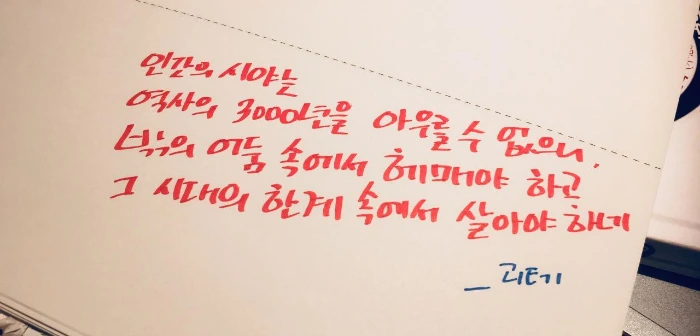 인간의 시야는
역사의 3000년을 아우를 수 없으니,
넋의 어둠 속에서 헤매야 하고
그 시대의 한계 속에서 살아야 하네
_ 괴테기